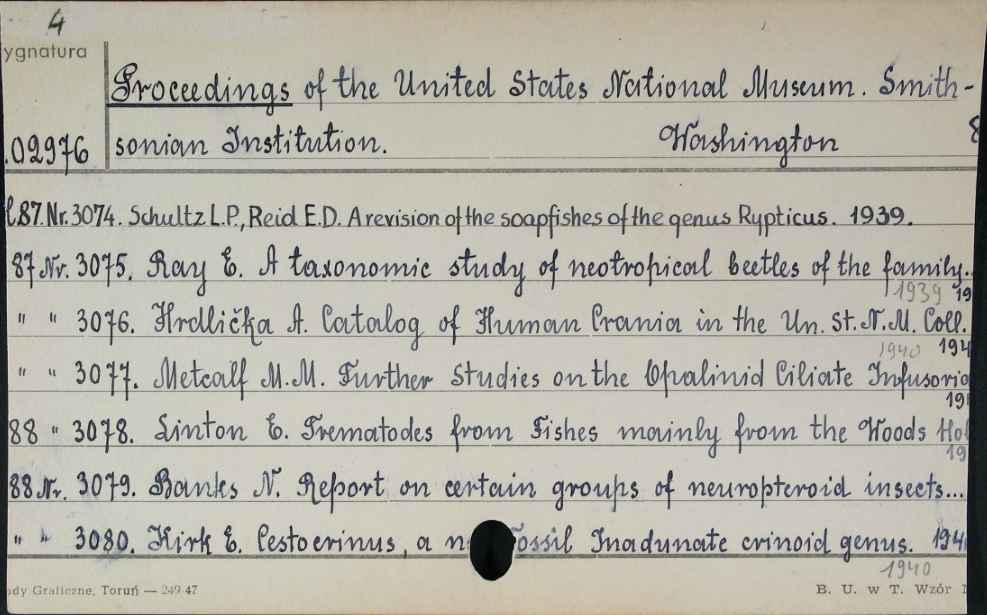 4
ygnatura
Proceedings of the United States National Museum. Smith-
.02976 sonian Institution. Washington 8
t.87.Nr.3074. Schultz L.P., Reid E.D. A revision of the soapfishes of the genus Rypticus. 1939.
87 Nr. 3075. Ray E. A taxonomic study of neotropical beetles of the family.
1939 19
" " 3076. Hrdlička A. Catalog of Human Crania in the Un. St. N. M. Coll.
1940 194
" " 3077. Metcalf M.M. Further Studies on the Opalinid Ciliate Infusoria
19
88 " 3078. Linton E. Trematodes from Fishes mainly from the Woods Hol
19
88 Nr. 3079. Banks N. Report on certain groups of neuropteroid insects...
" " 3080. Kirk E. Cestocrinus, a n Fossil Inadunate crinoid genus. 194
1940
ady Graficzne, Toruń — 249 47 B. U. w T. Wzór